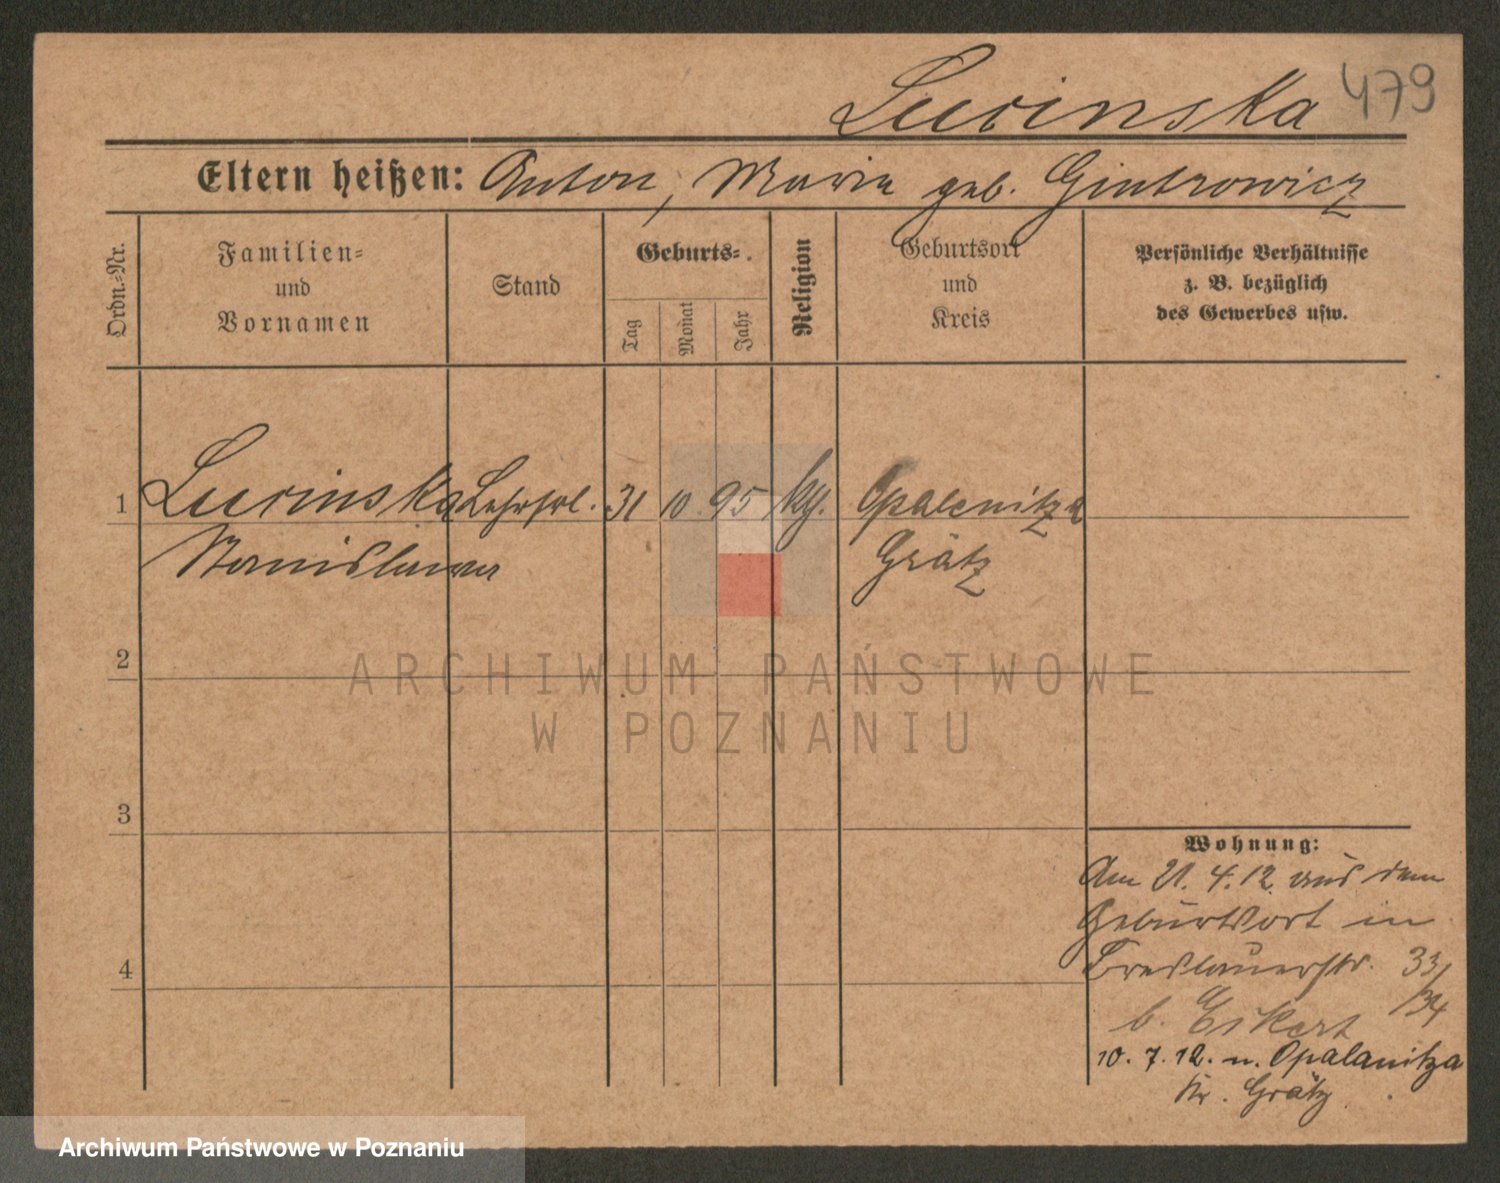 Lurinska 479
Eltern heißen: Anton, Maria geb. Gintrowicz
Ordn.-Nr.
Familien-
und
Vornamen
Stand
Geburts-
Tag
Monat
Jahr
Religion
Geburtsort
und
Kreis
Persönliche Verhältnisse
z. B. bezüglich
des Gewerbes usw.
1 Lurinska Lehrfrl. 31 10 95 kg. Opalenitza
Stanislawa Grätz
2
3
4
Wohnung:
Am 21. 4. 12 aus dem
Geburtsort in
Breslauerstr. 33/34
b. Eikert
10. 7. 12. n. Opalanitza
Kr. Grätz
ARCHIWUM PAŃSTWOWE
W POZNANIU
Archiwum Państwowe w Poznaniu